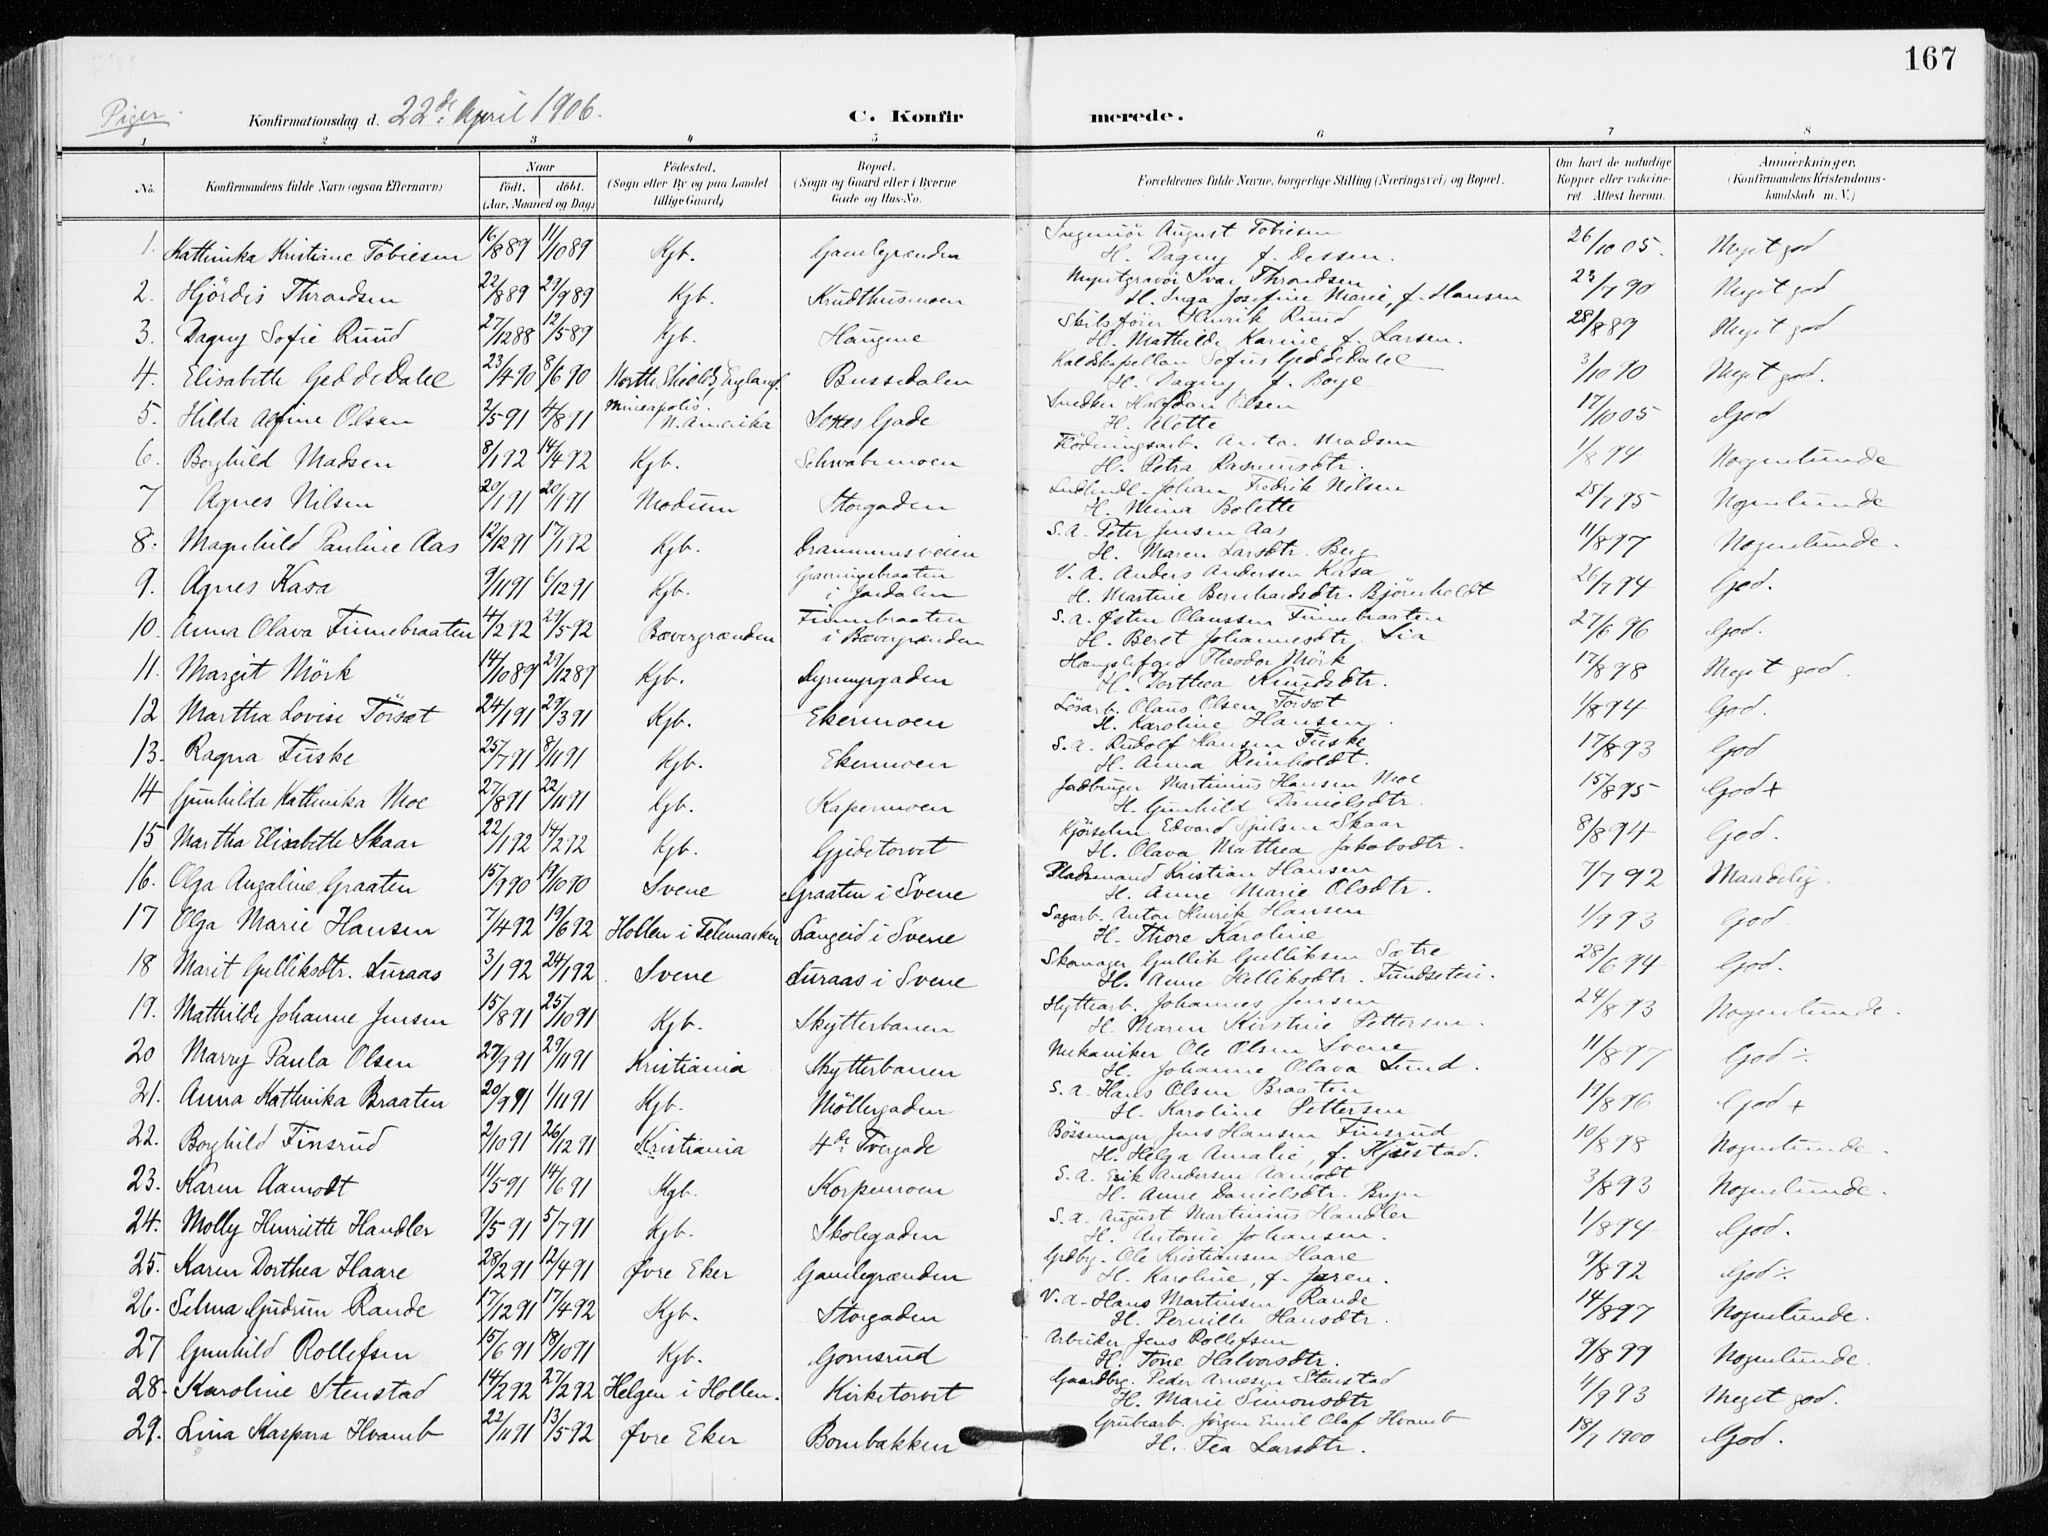 167
Piger.
Konfirmationsdag d. 22de April 1906.
C. Konfirmerede.
1 2 3 4 5 6 7 8
No. Konfirmandens fulde Navn (ogsaa Efternavn) Naar født. døbt. (Aar, Maaned og Dag) Fødested. (Sogn eller By og paa Landet tillige Gaard) Bopæl. (Sogn og Gaard eller i Byerne Gade og Hus-No. Forældrenes fulde Navne, borgerlige Stilling (Næringsvei) og Bopæl. Om havt de naturlige Kopper eller vakcineret. Attest herom. Anmærkninger. (Konfirmandens Kristendomskundskab m. V.)
1. Kathinka Kristiane Tobiesen 16/8 89 11/10 89 Kgb. Gamlegrænden Ingeniör August Tobiesen 26/10 05. Meget god
H. Dagny f. Dessen.
2. Hjördis Throndsen 22/8 89 29/9 89 Kgb. Krudthusmoen Myntgravör Ivar Throndsen 23/7 90 Meget god
H. Inga Josefine Marie, f. Hansen
3. Dagny Sofie Ruud 27/12 88 12/5 89 Kgb. Haugene Henrik Ruud 28/8 89 Meget god
H. Mathilde Karine, f. Larsen.
4. Elisabeth Gedde Dahl 23/4 90 8/6 90 North Shields, England Bussedalen Sofus Gedde Dahl 3/10 90 Meget god.
H. Dagny, f. Boye
5. Hilda Alfine Olsen 2/5 91 4/8 91 Mineapolis. N. Amerika Gade Snedker Halfdan Olsen 17/10 05 God
H. Alette
6. Borghild Madsen 8/1 92 14/4 92 Kgb. Schwabemoen Anton Madsen 1/8 94 Nogenlunde
H. Petra Rasmusdtr.
7 Agnes Nilsen 20/1 91 20/1 91 Modum Storgaden Johan Fredrik Nilsen 25/7 95 Nogenlunde
H. Mina Bolette
8. Magnhild Pauline Aas 12/12 91 17/1 92 Kgb. Drammensveien S. A. Peter Jensen Aas 11/8 97 Nogenlunde.
H. Maren Larsdtr. Berg
9. Agnes Kasa 9/11 91 6/12 91 Kgb. i Jondalen V. A. Anders Andersen Kasa 26/7 94 God.
H. Martine Bernhardsdtr. Björnholdt
10. Anna Olava Finnebraaten 4/2 92 29/5 92 Bævergrænden Finnebraaten i Bævergrænden S. A. Østen Olaussen Finnebraaten 27/6 96 God.
H. Beret Johannesdtr. Lia
11. Margit Mörk 14/10 89 29/12 89 Kgb. Dyrmyrgaden Theodor Mörk 17/8 98 Meget god.
H. Dorthea Knudsdtr.
12 Martha Lovise Törset 24/1 91 29/3 91 Kgb. Ekermoen Lösarb. Olaus Olsen Törset 1/8 94 God.
H. Karoline Hansen.
13. Ragna Fuske 25/7 91 8/11 91 Kgb. Ekermoen S. A. Rudolf Hansen Fuske 17/8 93 God
H. Anna Reinholdt.
14 Gunhilda Kathinka Moe 27/8 91 22/11 91 Kgb. Kapermoen Jordbruger Martinius Hansen Moe 15/8 95 God +
H. Gunhild Danielsdtr.
15 Martha Elisabeth Skaar 22/1 92 14/2 92 Kgb. Gjedetorvet Edvard Skaar 8/8 94 God.
H. Olava Mathea Jakobsdtr.
16. Olga Angaline Graaten 15/9 90 19/10 90 Svene Graaten i Svene Pladsmand Kristian Hansen 7/7 92 Maadelig.
H. Anne Marie Olsdtr.
17 Olga Marie Hansen 7/4 92 19/6 92 Hollen i Telemarken Langeid i Svene Sagarb. Anton Henrik Hansen 1/9 93 God
H. Thore Karoline
18 Marit Gulliksdtr. Luraas 3/1 92 24/1 92 Svene Luraas i Svene Skomager Gullik Gulliksen Sætre 28/6 94 God.
H. Anne Helliksdtr.
19. Mathilde Johanne Jensen 15/8 91 25/10 91 Kgb. Skytterbanen Hyttearb. Johannes Jensen 24/8 93 Nogenlunde.
H. Maren Kirstine Pettersen.
20 Marry Paula Olsen 27/9 91 29/11 91 Kristiania Skytterbanen Mekaniker Ole Olsen Svene 11/8 97 God ÷
H. Johanne Olava Lund.
21. Anna Kathinka Braaten 20/9 91 1/11 91 Kgb. Möllergaden S. A. Hans Olsen Braaten 17/8 96 God +
H. Karoline Pettersen
22. Borghild Finsrud 2/10 91 26/12 91 Kristiania 4de Tvergade Bössemager Jens Hansen Finsrud 10/8 98 Nogenlunde.
H. Helga Amalie, f. Kjistad.
23. Karen Aamodt 11/5 91 14/6 91 Kgb. Korpemoen S. A. Erik Andersen Aamodt 3/8 93 Nogenlunde.
H. Anne Danielsdtr. Bryn
24. Molly Henriette Handler 9/5 91 5/7 91 Kgb. Skolegaden S. A. August Martinius Handler 1/8 94 God.
H. Antonie Johansen.
25. Karen Dorthea Haare 28/2 91 12/4 91 Øvre Eker Gamlegrænden Grdbr. Ole Kristiansen Haare 9/8 92 God ÷
H. Karoline, f. Juren.
26. Selma Gudrun Rande 17/12 91 17/4 92 Kgb. Storgaden V. A. Hans Martinsen Rande 14/8 97 Nogenlunde.
H. Pernille Hansdtr.
27 Gunhild Rollefsen 15/6 91 18/10 91 Kgb. Gomsrud Arbeider Jens Rollefsen 9/8 99 Nogenlunde.
H. Tone Halvorsdtr.
28. Karoline Stenstad 14/2 92 27/2 92 Helgen i Hollen. Kirketorvet Gaardbrg. Peder Arnesen Stenstad 4/9 93 Meget god.
H. Marie Simonsdtr
29. Lina Kaspara Hvamb 22/11 91 13/5 92 Øvre Eker Bombakken Grubearb. Jörgen Emil Olaf Hvamb 18/7 1900 God.
H. Tea Larsdtr.